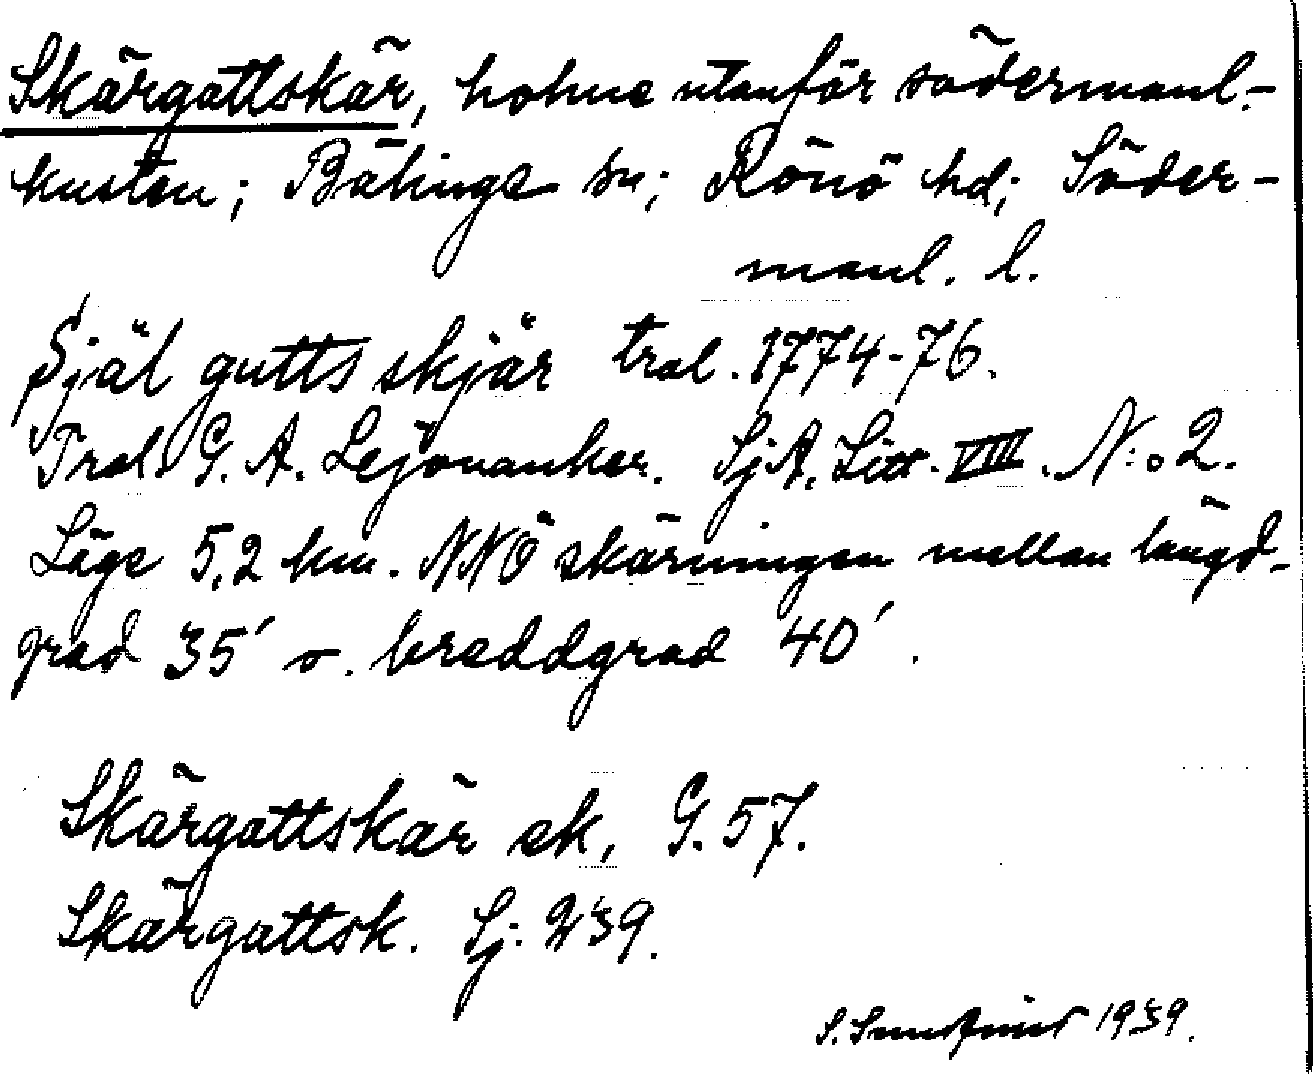 Skärgattskär, holme utanför södermanl.-
kusten; Bälinge sn; Rönö hd; Söder-
manl. l.
Själ gutts skjär tral. 1774-76.
Tral. G. A. Lejonanker. SjA. Litt. VIII. N:o 2.
Läge 5,2 km. NNÖ skärningen mellan längd-
grad 35' o. breddgrad 40'.
Skärgattskär ek, G. 57.
Skärgattsk. Sj. 239.
S. 1939.